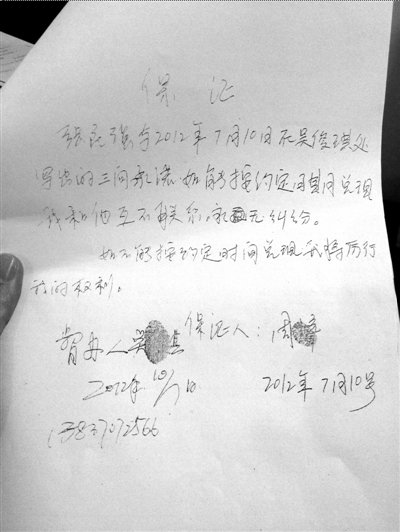 保 证
张 强于2012年7月10日在吴俊琪处
写出的三间承诺如能按约定周期间兑现
我和他互不联系,永无纠纷。
如不能按约定时间兑现我将历行
我的权利。
保证人:周
2012年10/7
2012年7月10号
13837072566